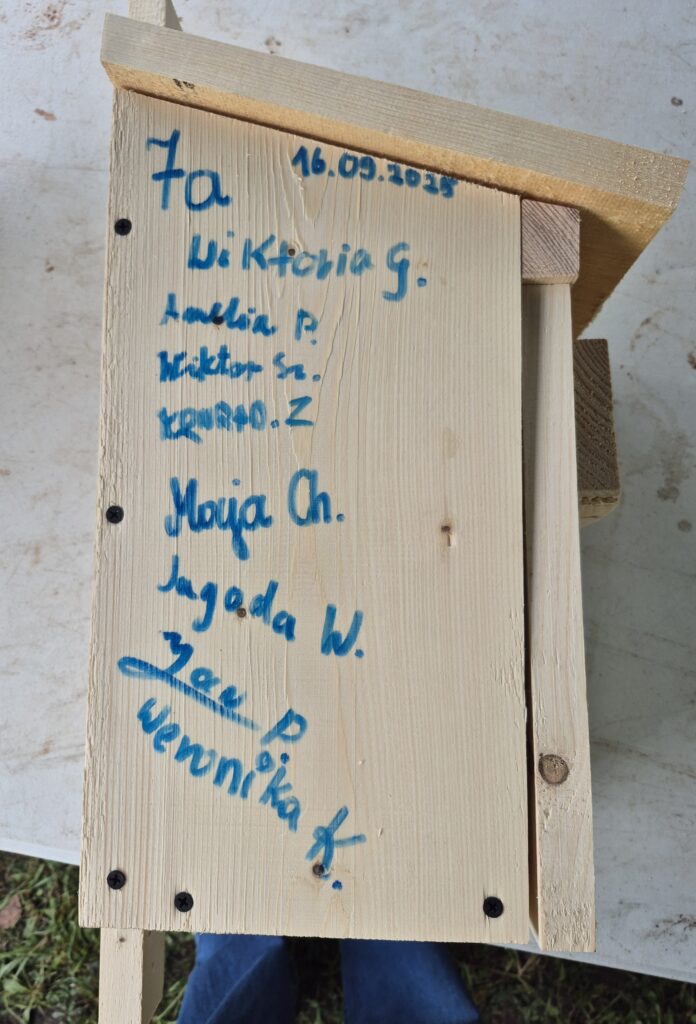 7a 16.09.2025
Wiktoria G.
Amelia P.
Wiktor Sz.
KONRAD. Z
Maja Ch.
Jagoda W.
Jan P.
Weronika K.